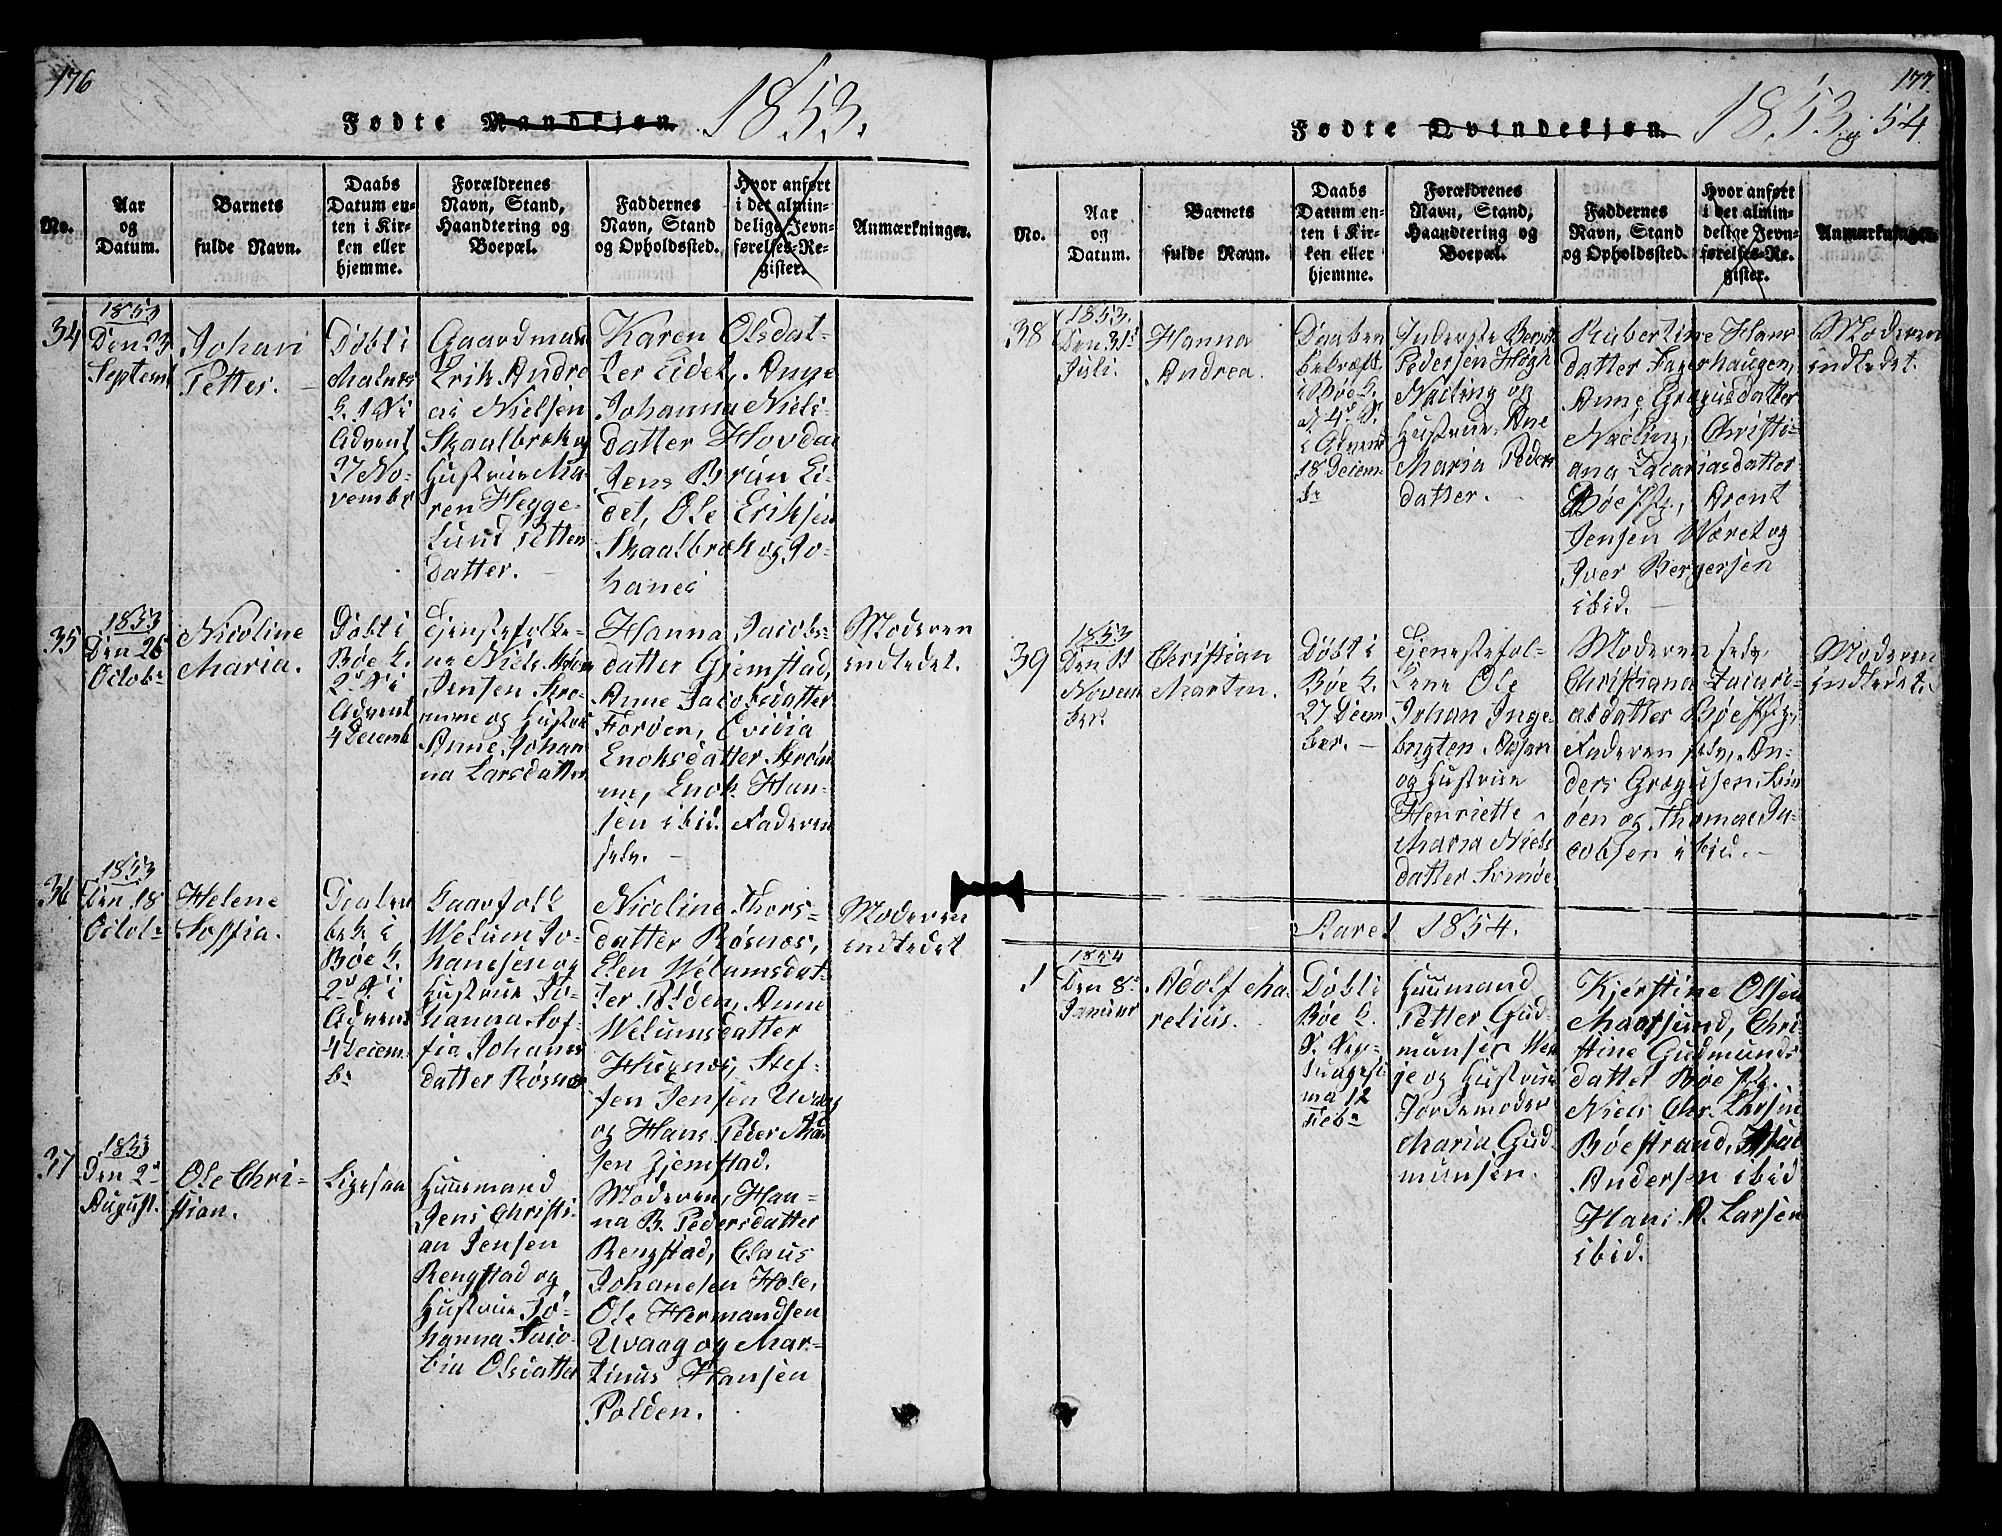 176
Fødte Mandkjøn. 1853.
No.
Aar
og
Datum.
Barnets
fulde Navn.
Daabs
Datum en-
ten i Kir-
ken eller
hjemme.
Forældrenes
Navn, Stand,
Haandtering og
Boepæl.
Faddernes
Navn, Stand
og Opholdssted.
Hvor anført
i det almin-
delige Jevn-
førelses-Re-
gister.
Anmærkninger.
34
1853
Den 23
Septembr
Johan
Petter.
Døbt i
Malnes
K. 1 S. i
Advent
27 No-
vembr
Gaardmand
Erik Andre
as Nielsen
Skaalbrek og
Hustrue Ma
ren Hegge-
lund Petters
datter.
Karen Olsdat-
ter Eidet, Anne
Johanna Niels
datter Hovden
Jens Brun Ei-
det, Ole Eriksen
Skaalbrek og Jo-
hanes
35
1853
Den 26
Octobr
Nicoline
Maria.
Døbt i
Bøe K.
2d S. i
Advent
4 Decemb
Tjenestefolke-
ne Niels
Jensen Strø-
mme og Hustrue
Anne Johan
na Larsdatter
Hanna Jacobs-
datter Gjemstad,
Anne Jacobsdatter
Forøen, Evicia
Enoksdatter Strøm
me, Enok Han-
sen ibid. Faderen
selv.
Moderen
indledet.
36
1853
Den 18
Octobr
Helene
Soffia.
Daaben
bek. i
Bøe K.
2d S. i
Advent
4 Decem-
br
Gaarfolk
Welum Jo-
hanesen og
Hustrue Jo-
hanna Sof-
fia Johans
datter Røsnes
Nicoline Thors-
datter Røsnæs,
Elen Welumsdat-
ter Polden, Anne
Welumsdatter
Hugnes, Stef-
fen Jensen Uvaag
og Hans Peder
sen Gjemstad.
Moderen
indledet
37
1853
Den 2d
August.
Ole Chri-
stian.
Ligesaa
Huusmand
Jens Christi-
an Jensen
Rengstad og
Hustrue Jo-
hanna Jaco-
bia Olsdatter
Moderen, Han-
na B. Pedersdatter
Rengstad, Claus
Johanesen Hole,
Ole Hermandsen
Uvaag og Mar-
tinus Hansen
Polden.
177.
Fødte Qvindekjøn. 1853 og 54
No.
Aar
og
Datum.
Barnets
fulde Navn.
Daabs
Datum en-
ten i Kir-
ken eller
hjemme.
Forældrenes
Navn, Stand,
Haandtering og
Boepæl.
Faddernes
Navn, Stand
og Opholdssted.
Hvor anført
i det almin-
delige Jevn-
førelses-Re-
gister.
Anmærkninger.
38
1853.
Den 31t
Juli.
Hanna
Andrea.
Daaben
bekræft.
i Bøe K.
d. 4d S.
i Advent
18 Decem-
br
Inderste Bernt
Pedersen Høgh
Næiling og
Hustrue Ane
Maria Peders
datter.
Rubertine Hans
datter Fagerhaugen,
Anne Gregusdatter
Næiling, Christi-
ana Zacariasdatter
Bøe Pg., Arent
Jensen Wæret og
Iver Bergersen
ibid.
Moderen
indledet.
39
1853
Den 11
Novem
ber.
Christian
Martin.
Døbt i
Bøe K.
27 Decem
ber.
Tjenestefol-
kene Ole
Johan Inge-
brigten Aasan
og Hustrue
Henriette
Maria Niels
datter
Moderen selv,
Christiana Zacari-
asdatter Bøe Pg.,
Faderen selv, An-
ders Gregusen
øen og Thomas Ja-
cobsen ibid.
Moderen
indledet.
Aaret 1854.
1
1854
Den 8de
Januar
Adolf Ma-
relius.
Døbt i
Bøe K.
S. Sep-
tuagesi
ma 12
Febr
Huusmand
Petter Gud-
munsen
og Hustrue
Jordemoder
Maria Gud-
munsen.
Kjerstine Olsen
Maarsund, Chri-
stine Gudmunds
datter Bøe Pg.
Niels Chr. Larsen
Bøestrand, Isac
Andersen ibid
Hans A. Larsen
ibid.